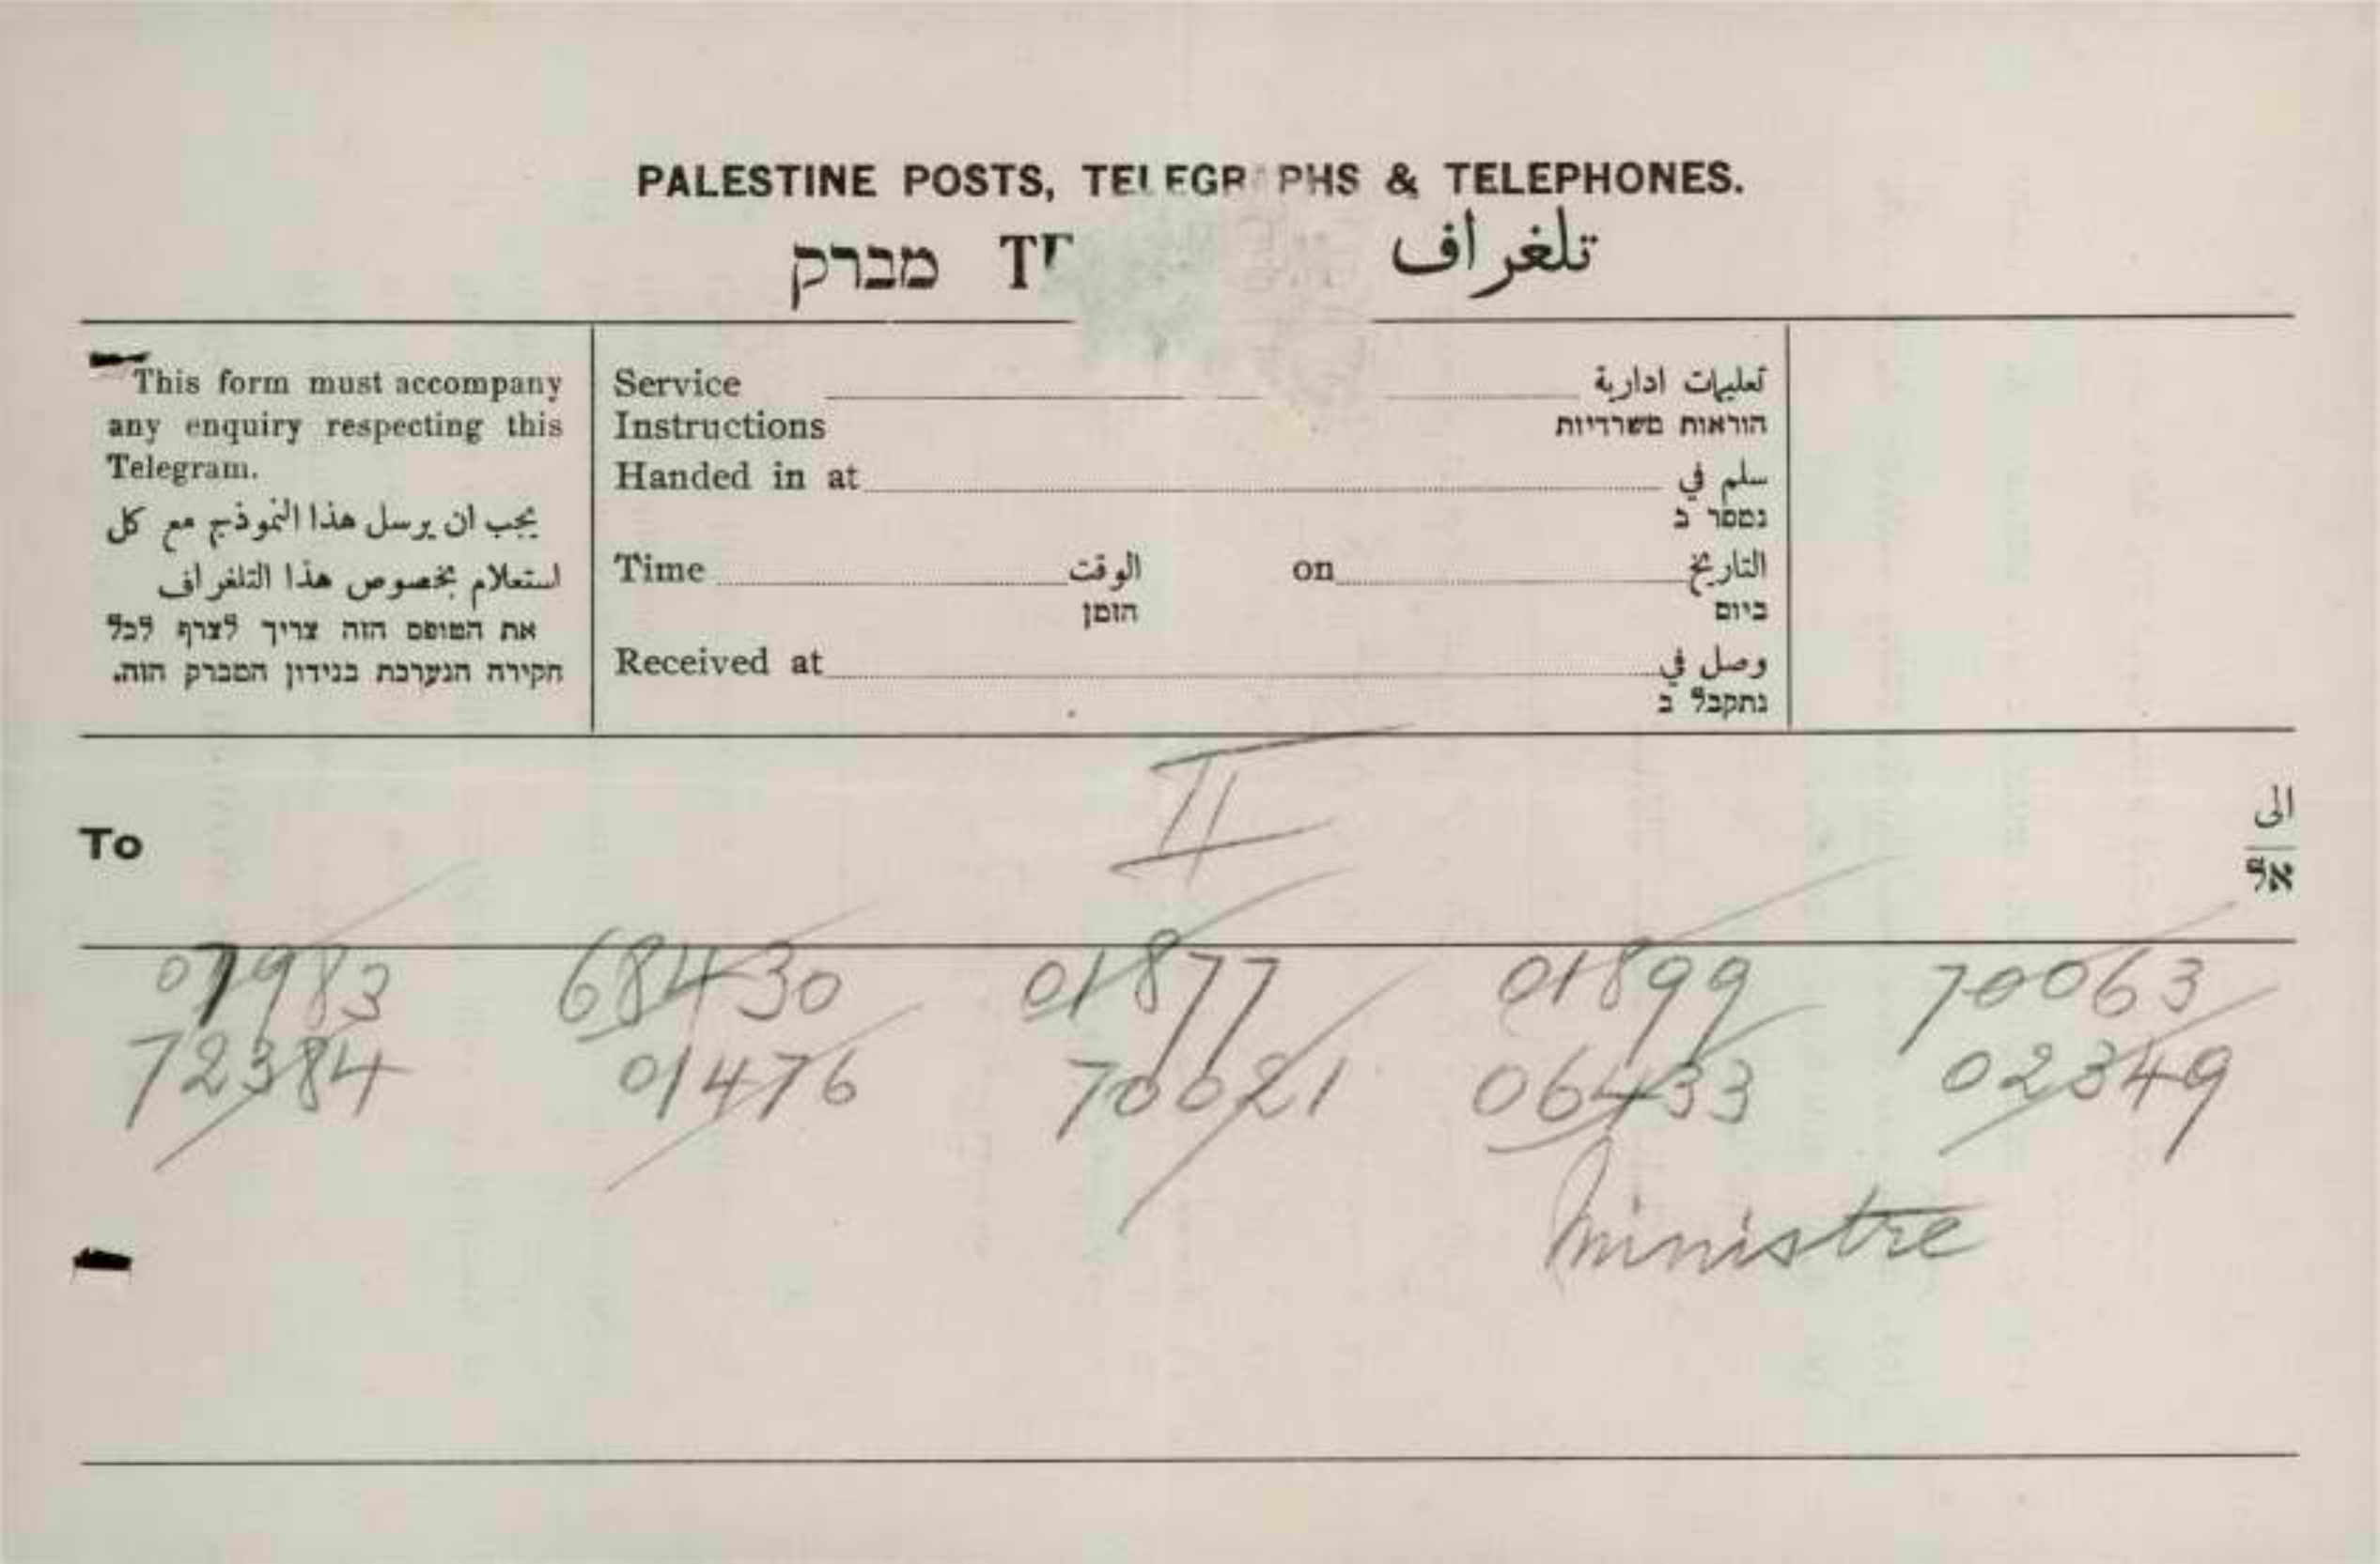 PALESTINE POSTS, TELEGRAPHS & TELEPHONES.
מברק תلغراف
This form must accompany
any enquiry respecting this
Telegram.
يجب ان يرسل هذا النموذج مع كل
استعلام بخصوص هذا التلغراف
את הטופס הזה צריך לצרף לכל
חקירה הנערכת בנידון המברק הזה.
Service تعليمات ادارية
Instructions הוראות משרדיות
Handed in at سلم في
נמסר ב
Time الوقت on التاريخ
הזמן ביום
Received at وصل في
נתקבל ב
II
To الى
אל
07983 68430 01877 01899 70063
72384 01476 70021 06433 02349
Ministre